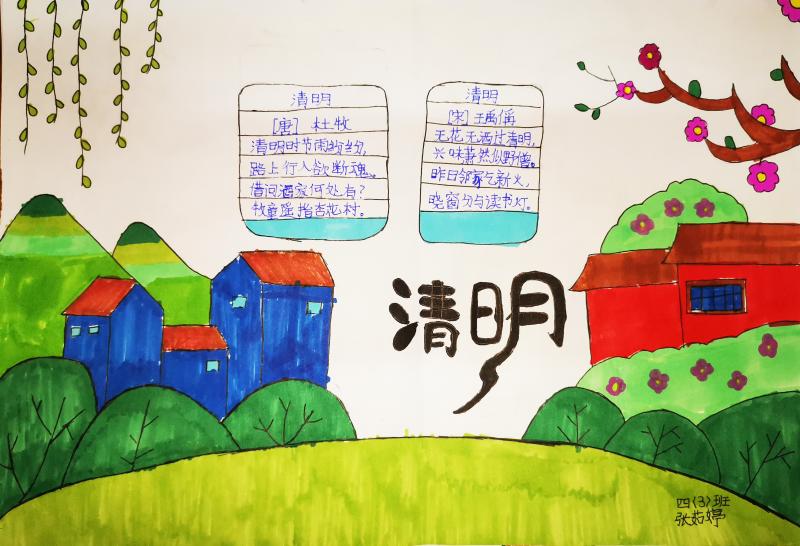 清明
[唐] 杜牧
清明时节雨纷纷,
路上行人欲断魂。
借问酒家何处有?
牧童遥指杏花村。
清明
[宋] 王禹偁
无花无酒过清明,
兴味萧然似野僧。
昨日邻家乞新火,
晓窗分与读书灯。
清明
四(3)班
张茹婷